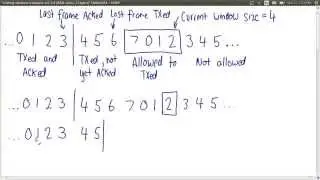 Last frame Acked
Last frame TXed
Current window size = 4
... 0 1 2 3 | 4 5 6 7 0 1 2 3 4 5 ...
TXed and Acked
TXed, not yet Acked
Allowed to TXed
Not allowed
... 0 1 2 3 4 5 6 7 0 1 2 3 4 5 ...
... 0 1 2 3 4 5